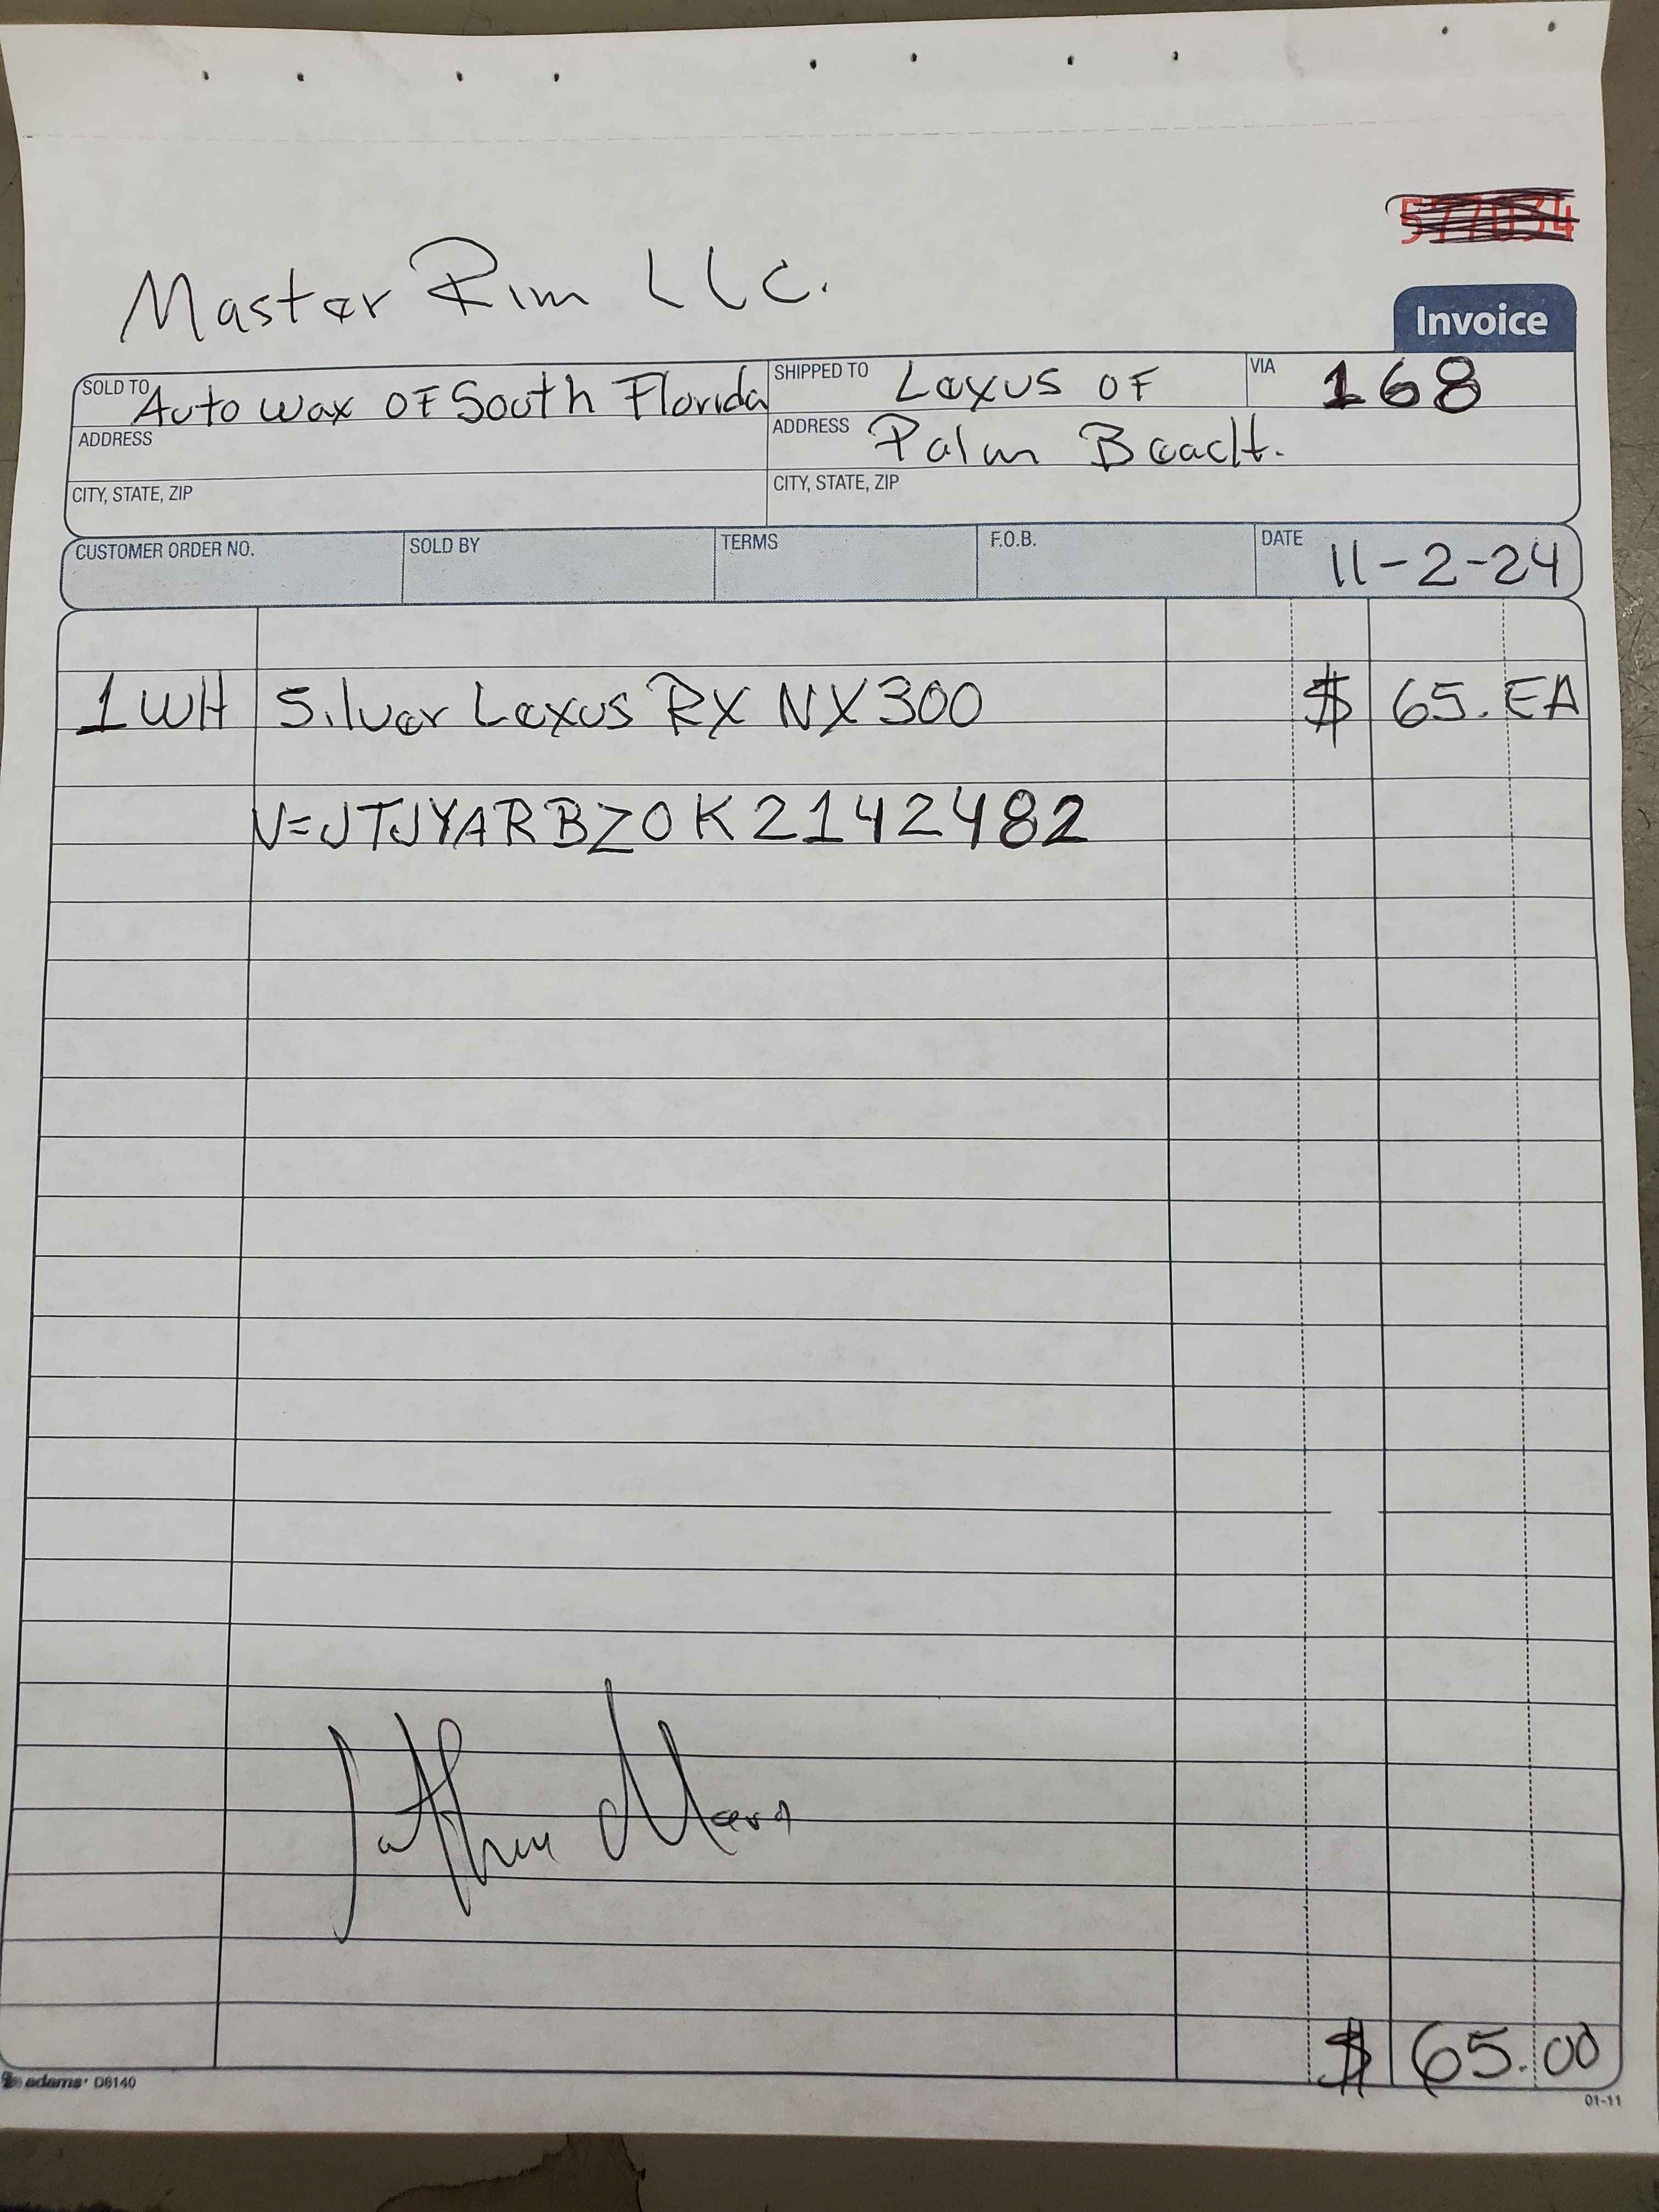 577034
Master Rim LLC.
Invoice
SOLD TO Auto Wax OF South Florida SHIPPED TO Lexus OF VIA 168
ADDRESS ADDRESS Palm Beach.
CITY, STATE, ZIP CITY, STATE, ZIP
CUSTOMER ORDER NO. SOLD BY TERMS F.O.B. DATE 11-2-24
1 WH Silver Lexus RX NX300 $ 65. EA
V=JTJYARBZ0K2142482
$ 65.00
adams D8140
01-11